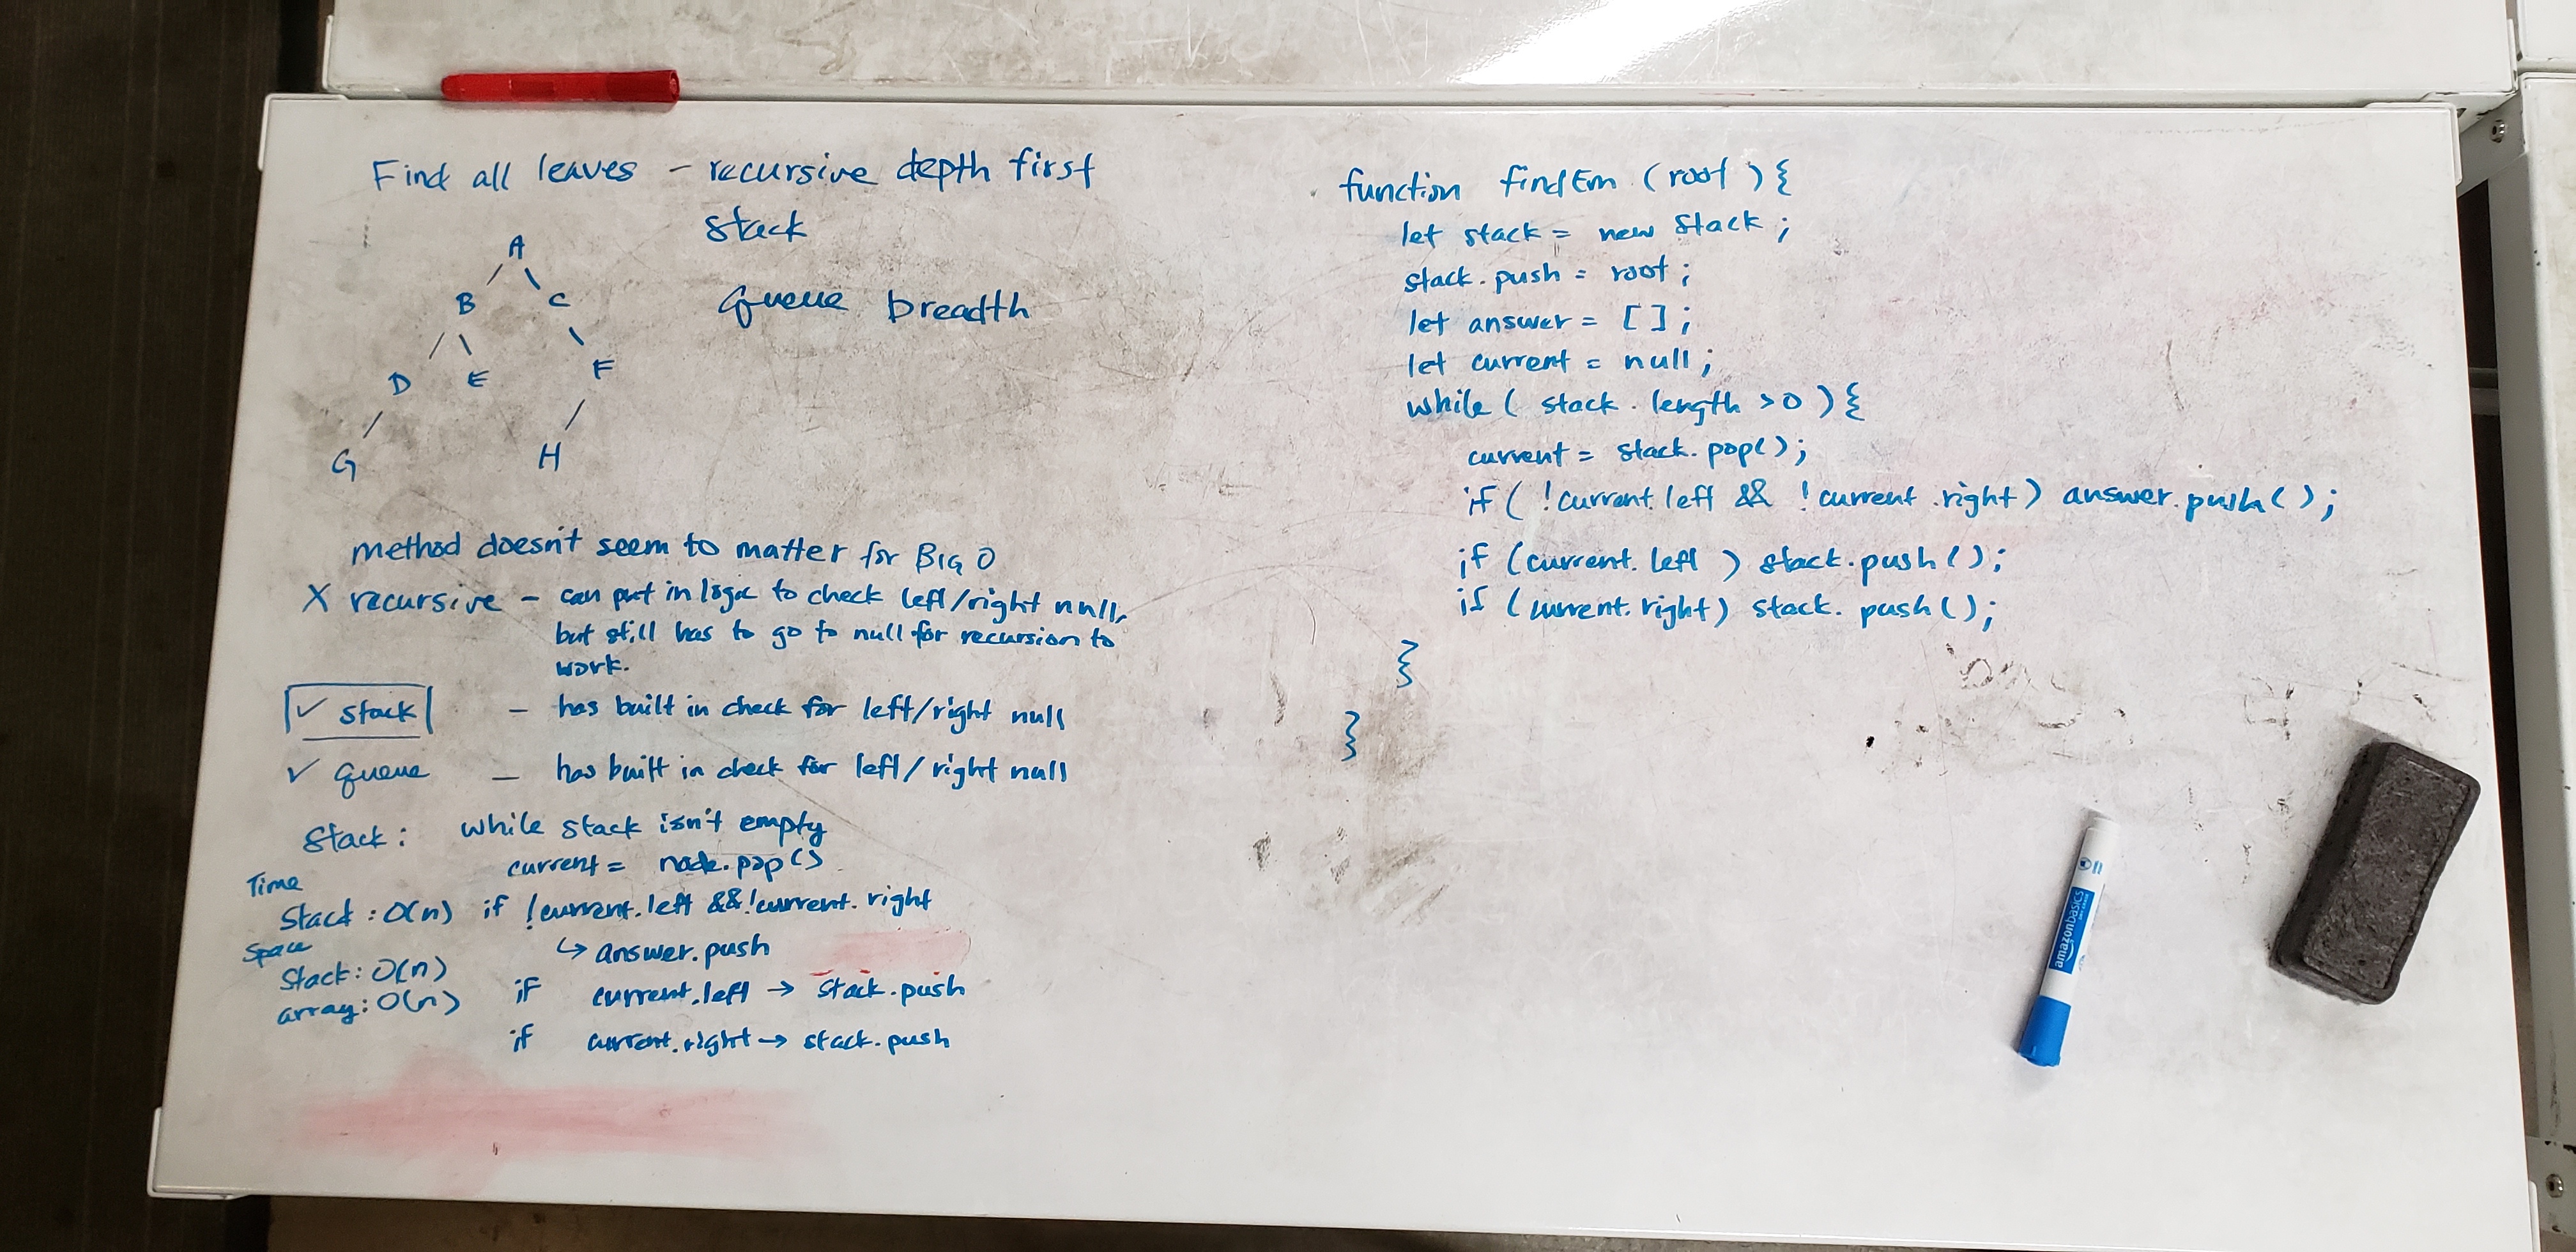 Find all leaves - recursive depth first
stack
queue breadth
A
B C
D E F
G H
method doesn't seem to matter for BIG O
X recursive - can put in logic to check left/right null,
but still has to go to null for recursion to
work.
✓ stack - has built in check for left/right null
✓ queue - has built in check for left/right null
Stack: while stack isn't empty
current = node.pop()
Time
Stack: O(n) if !current.left && !current.right
↳ answer.push
Space
Stack: O(n)
array: O(n)
if current.left → stack.push
if current.right → stack.push
function findEm (root) {
let stack = new Stack;
stack.push = root;
let answer = [];
let current = null;
while ( stack.length >0 ) {
current = stack.pop();
if ( !current.left && !current.right) answer.push();
if (current.left ) stack.push();
if (current.right) stack.push();
}
}
amazonbasics